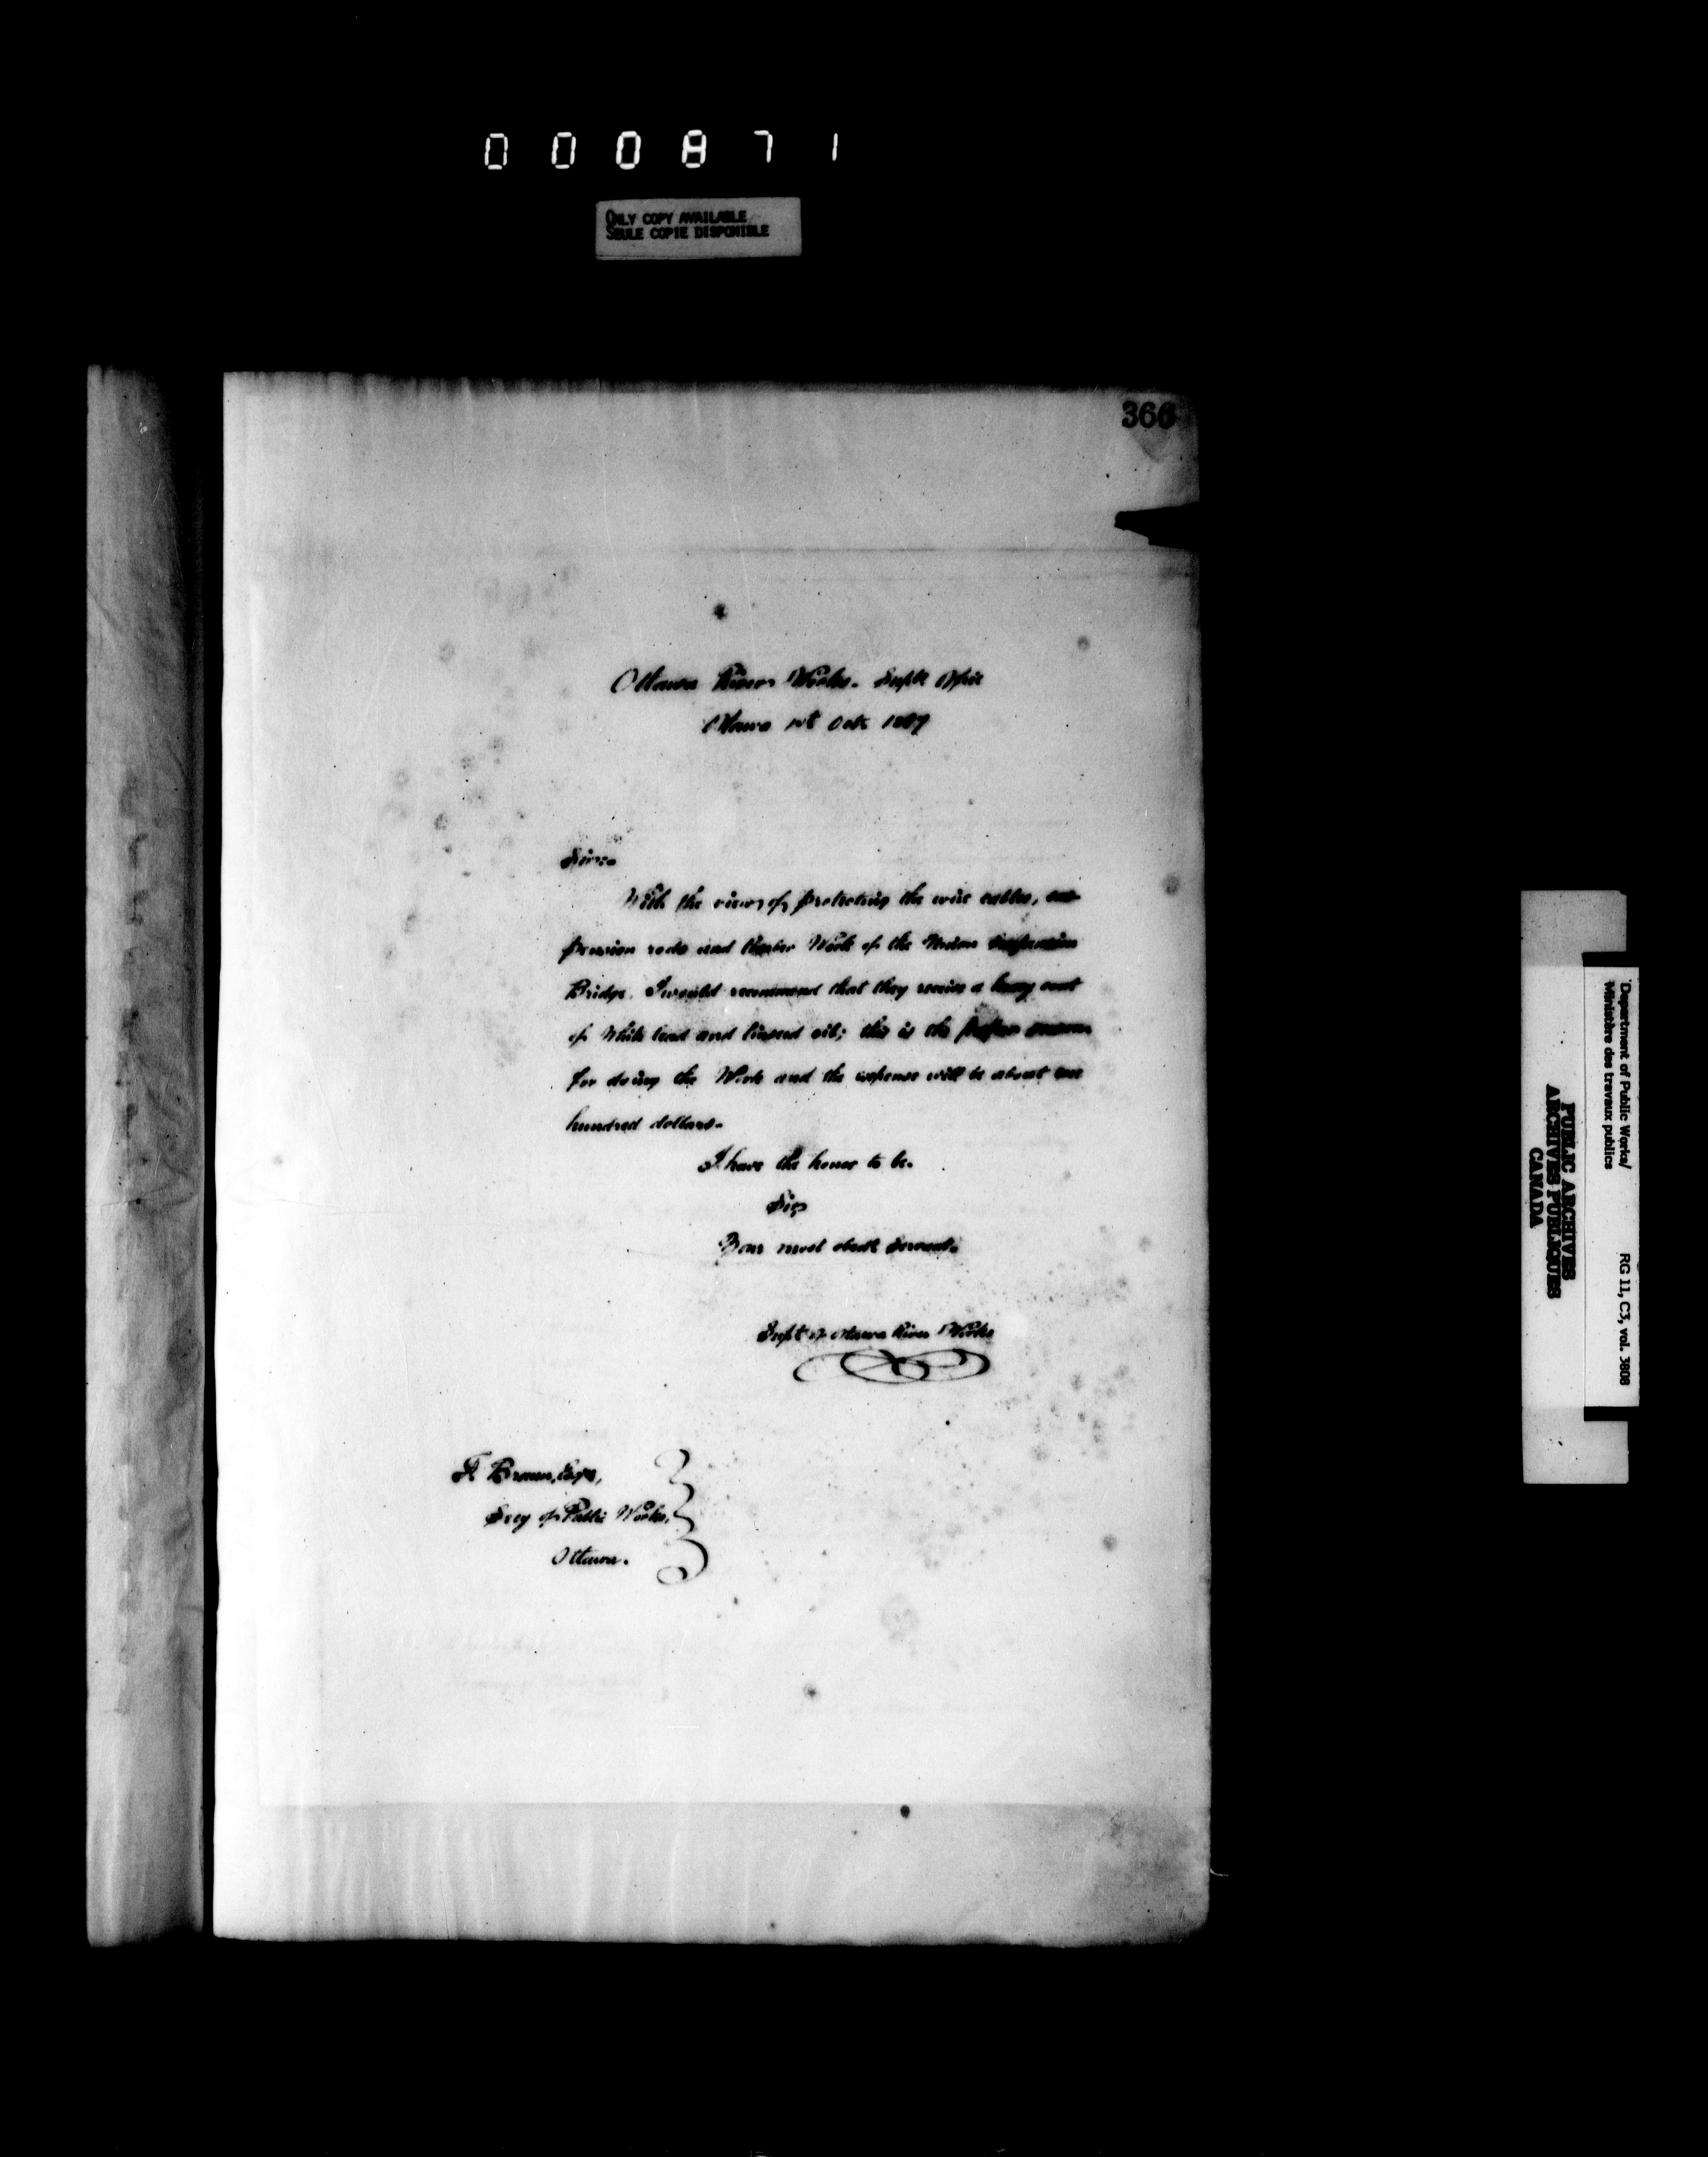 000871
ONLY COPY AVAILABLE
SEULE COPIE DISPONIBLE
366
Ottawa River Works. Supts Office
Ottawa 1st Octr
Sir:
With the view of protecting the wire cables, sus
pension rods and timber Work of the Union Suspension
Bridge. I would recommend that they receive a heavy coat
of White lead and linseed oil; this is the proper season
for doing the Work and the expense will be about one
hundred dollars.
I have the honor to be.
Sir
Your most obedt Servant.
Supt of Ottawa River Works
F. Braun, Esqr,
Secy of Public Works,
Ottawa.
Department of Public Works/
Ministère des travaux publics
RG 11, C3, vol. 3808
PUBLIC ARCHIVES
ARCHIVES PUBLIQUES
CANADA